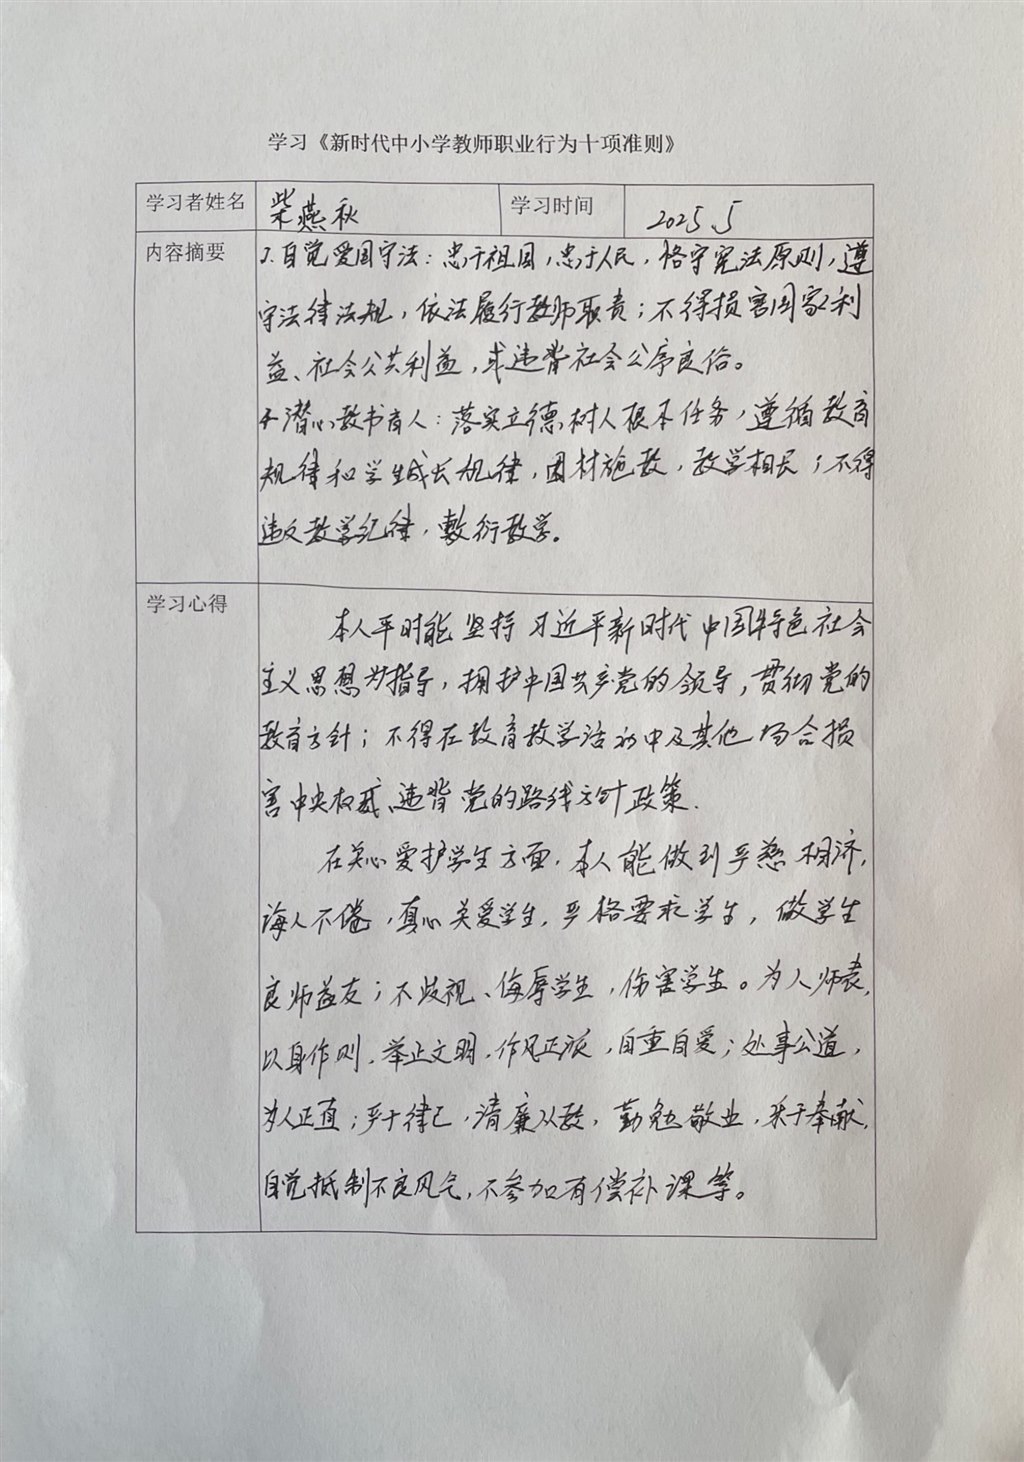 学习《新时代中小学教师职业行为十项准则》
学习者姓名 柴燕秋 学习时间 2025.5
内容摘要 2.自觉爱国守法：忠于祖国，忠于人民，恪守宪法原则，遵
守法律法规，依法履行教师职责；不得损害国家利
益、社会公共利益，或违背社会公序良俗。
4.潜心教书育人：落实立德树人根本任务，遵循教育
规律和学生成长规律，因材施教，教学相长；不得
违反教学纪律，敷衍教学。
学习心得
本人平时能坚持习近平新时代中国特色社会
主义思想为指导，拥护中国共产党的领导，贯彻党的
教育方针；不得在教育教学活动中及其他场合损
害中央权威、违背党的路线方针政策.
在关心爱护学生方面，本人能做到严慈相济，
诲人不倦，真心关爱学生，严格要求学生，做学生
良师益友；不歧视、侮辱学生，伤害学生。为人师表，
以身作则，举止文明，作风正派，自重自爱；处事公道，
为人正直；严于律己，清廉从教，勤勉敬业，乐于奉献，
自觉抵制不良风气，不参加有偿补课等。